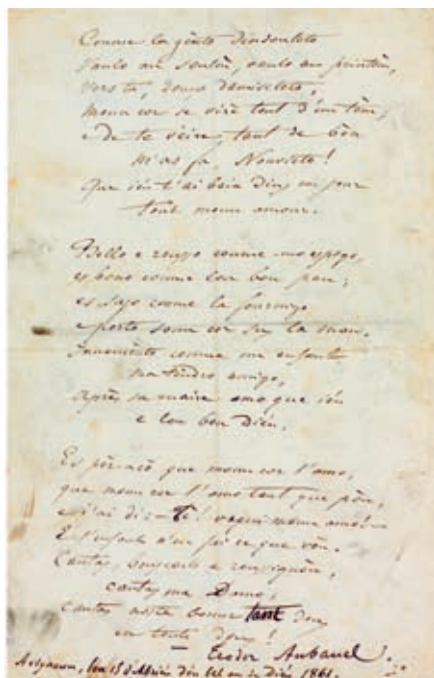 Coume la gènto dindouleto
Vaulo au soulèu, vaulo au printèm,
Vers tu, douço damiseleto,
moun cor se viro tout d'un tèm,
e de te vèire tant de bèn
m'as fa, Nouveleto!
Que iéu t'ai baia dins un jour
tout moun amour.
Bello e roujo coume uno espigo,
es bono coume lou bon pan;
es sajo coume la fournigo
e porto soun cor sus la man.
Innoucènto coume un enfant
ma tendro amigo,
Après sa maire amo que iéu
e lou bon Diéu.
Es pèr acò que moun cor l'amo,
que moun cor l'amo tant que pòu,
e j'ai di: Tè! vaqui moun amo!
E l'enfant n'en fai ce que vòu.
Cantas, e roussignòu,
cantas ma Damo,
Cantas noste bonur tant dous
en touti dous!
Teodor Aubanel.
Avignoun, lou 15 d'Abriéu dóu bèl an de Diéu 1861.